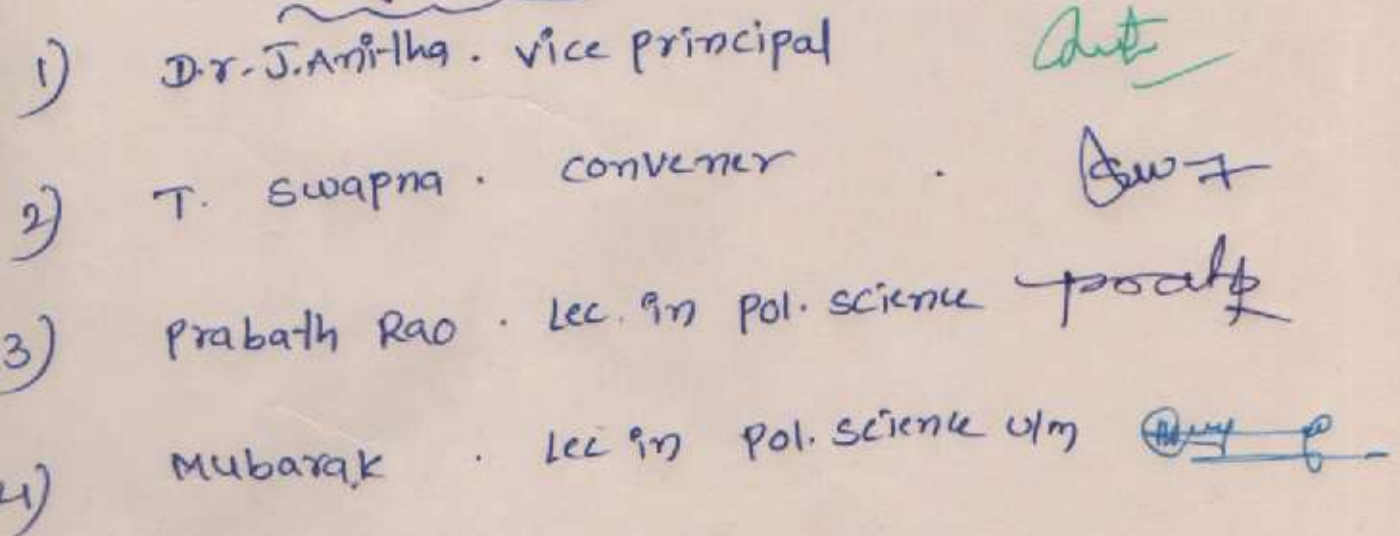 1) D.r. J. Anitha . vice principal
2) T. Swapna . convener .
3) Prabath Rao . Lec. in pol. science
4) Mubarak . Lec in pol. science u/m